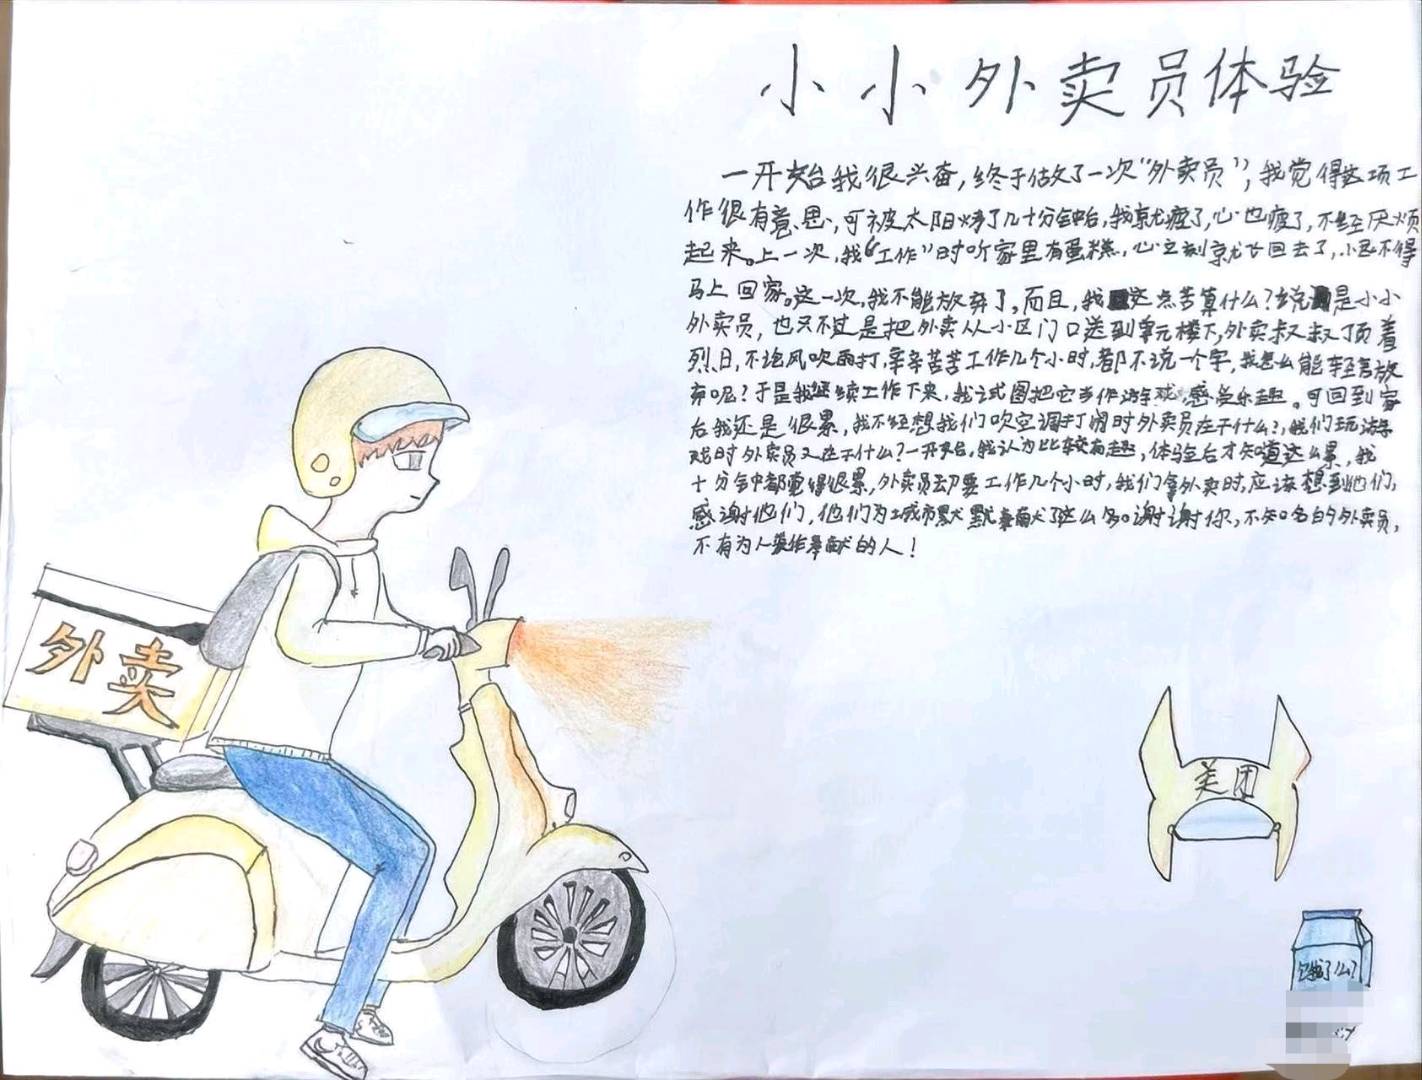 小小外卖员体验
一开始我很兴奋，终于做了一次“外卖员”，我觉得这项工
作很有意思，可被太阳烤了几十分钟后，我就疲了，心也疲了，不经厌烦
起来。上一次，我“工作”时听家里有蛋糕，心立刻就飞回去了，小忍不得
马上回家。这一次，我不能放弃了，而且，我这点苦算什么？说是小小
外卖员，也只不过是把外卖从小区门口送到单元楼下，外卖叔叔顶着
烈日，不论风吹雨打，辛辛苦苦工作几个小时，都不说一个字，我怎么能轻言放
弃呢？于是我继续工作下来，我试图把它当作游戏，感受乐趣。可回到家
后我还是很累，我不经想我们吹空调打闹时外卖员在干什么？，我们玩游
戏时外卖员又在干什么？一开始，我认为比较有趣，体验后才知道这么累，我
十分钟都觉得很累，外卖员却要工作几个小时，我们拿外卖时，应该想到他们，
感谢他们，他们为城市默默奉献了这么多。谢谢你，不知名的外卖员，
不有为人类作奉献的人！
外卖
美团
饿了么？